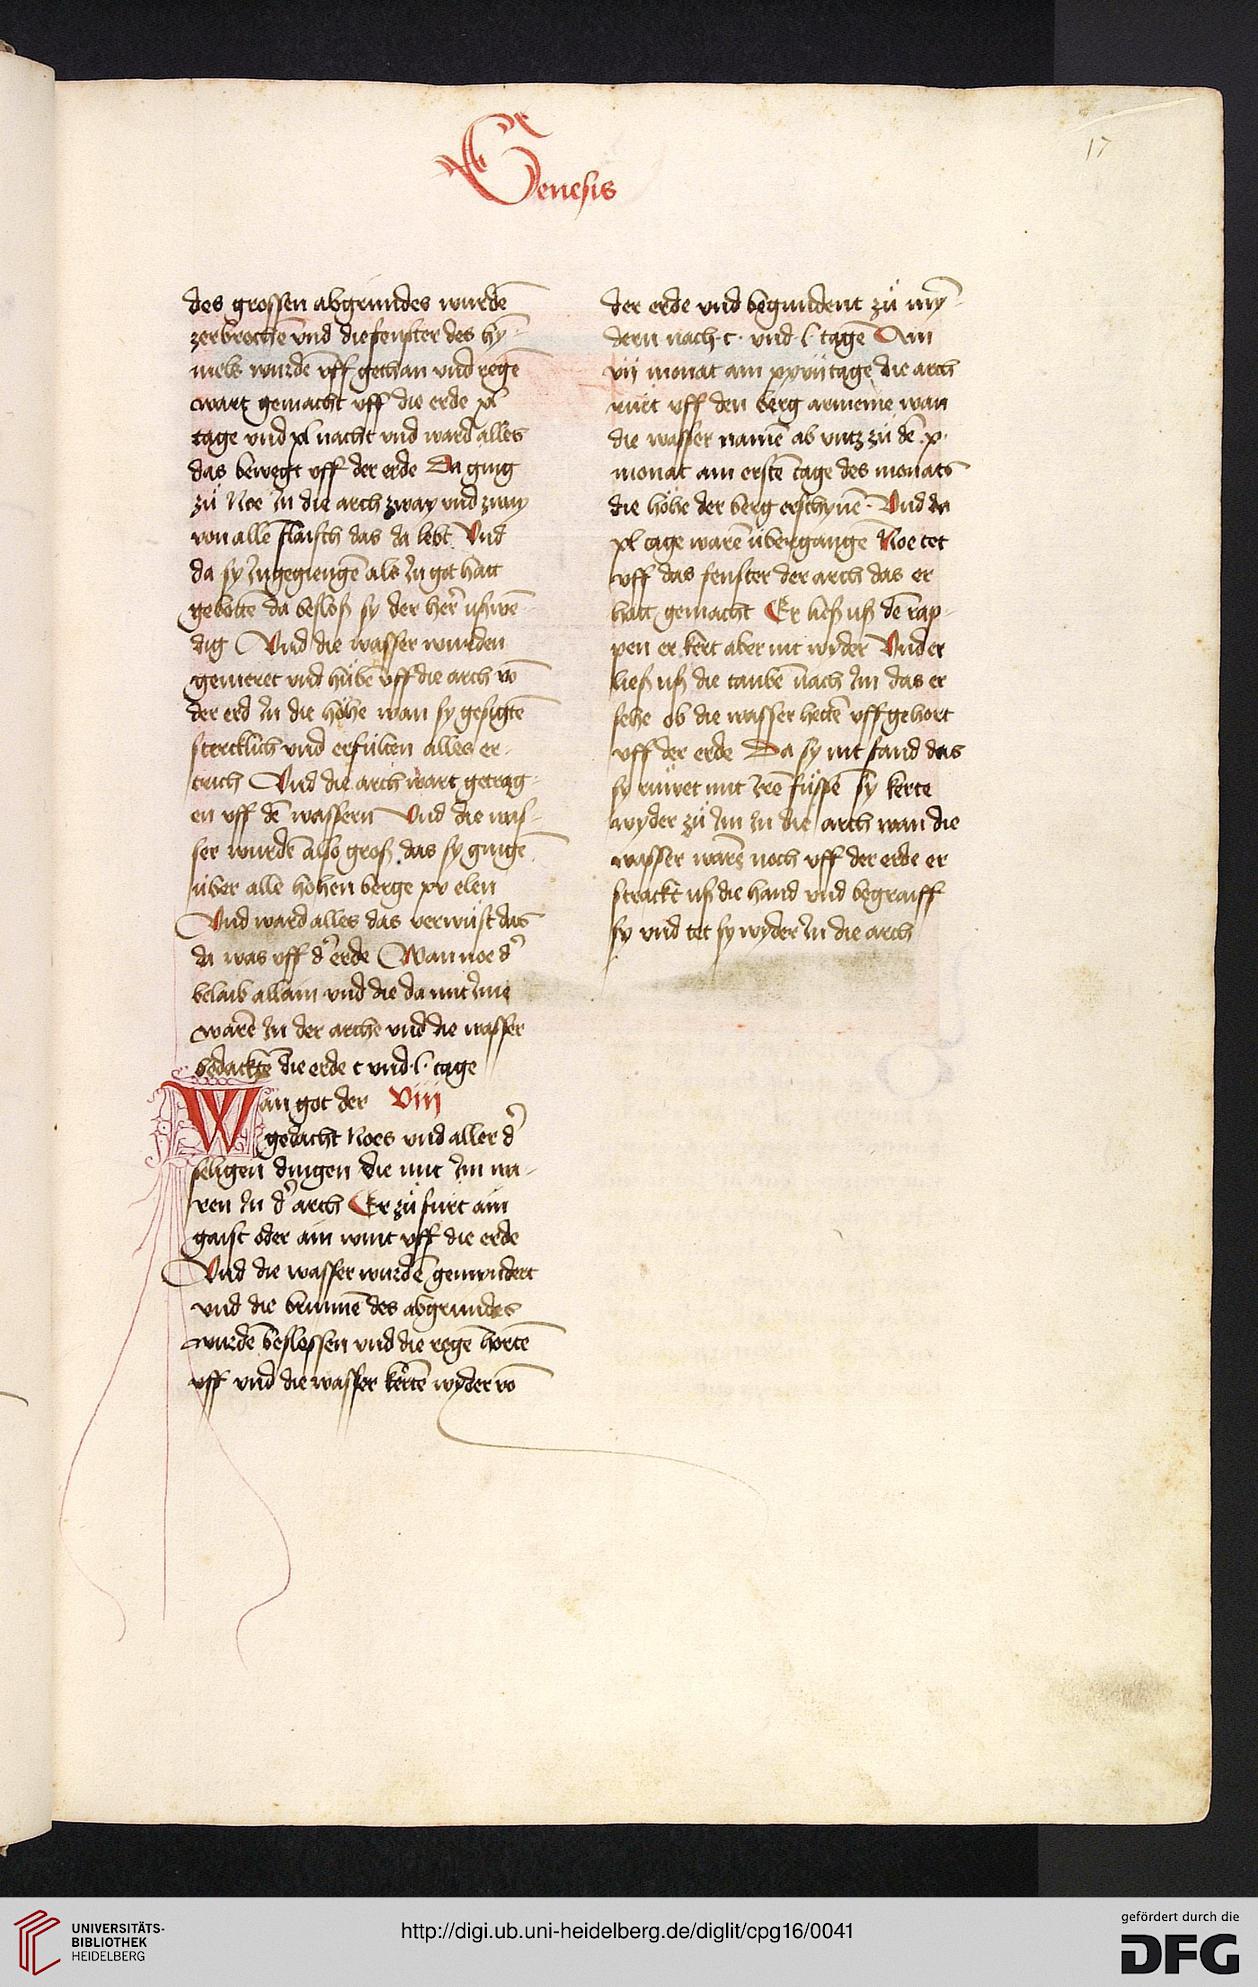 Genesis
17
des grossen abgrundes wurdē
zerbrochē vnd die fenster des hÿ-
mels wurdē vff gethan vnd regē
wart gemacht vff die erde xl
tage vnd xl nacht vnd ward alles
das bewegt vff der erde Da ging
zů Noe In die arch zway vnd zway
von allē flaisch das da lebt Vnd
da sy Ingegiengē als In got hātt
gebottē da beslōß sy der her̄ ußwē-
dig Vnd die wasser wurden
gemeret vnd hůbē vff die arch vō
der erd In die höhe wan sy gesigtē
stercklich vnd erfulten alles er-
trich Vnd die arch wart getrag-
en vff dē wassern Vnd die was-
ser wurdē also groß das sy gingē
über alle hohen berge xv elen
Vnd ward alles das verwůst das
da was vff d' erde Wan noe d'
belaib allain vnd die da mit Ime
warē In der archē vnd die wasser
bedacktē die erde c vnd l tage
Wan got der VIII
gedacht Noes vnd aller d'
seligen dingen die mit Im wa-
ren In d' arch Er zů furt ain
gaist oder ain wint vff die erde
Vnd die wasser wurdē gemyndert
vnd die brunnē des abgrundes
wurdē beslossen vnd die regē hortē
vff vnd die wasser kertē wyder vō
der erde vnd begundent zů myn-
dern nach c vnd l tagē Am
vij monat am xxvij tage die arch
růrt vff den berg armenie wan
die wasser namē ab vntz zů dē x
monat am erstē tage des monats
die höhe der berg erschynē Vnd da
xl tage warē übergangē Noe tet
vff das fenster der arch das er
hatt gemacht Er ließ uß dē rap-
pen er kert aber nit wyder Vnd er
ließ uß die taubē nach Im das er
sehe ob die wasser hettē vffgehort
vff der erde Da sy nit fand das
sy růwet mit Irē fůssē sy kerte
wyder zů Im In die arch wan die
wasser warē noch vff der erde er
strackt uß die hand vnd begraiff
sy vnd tet sy wyder In die arch
UNIVERSITÄTS-
BIBLIOTHEK
HEIDELBERG
http://digi.ub.uni-heidelberg.de/diglit/cpg16/0041
gefördert durch die
DFG